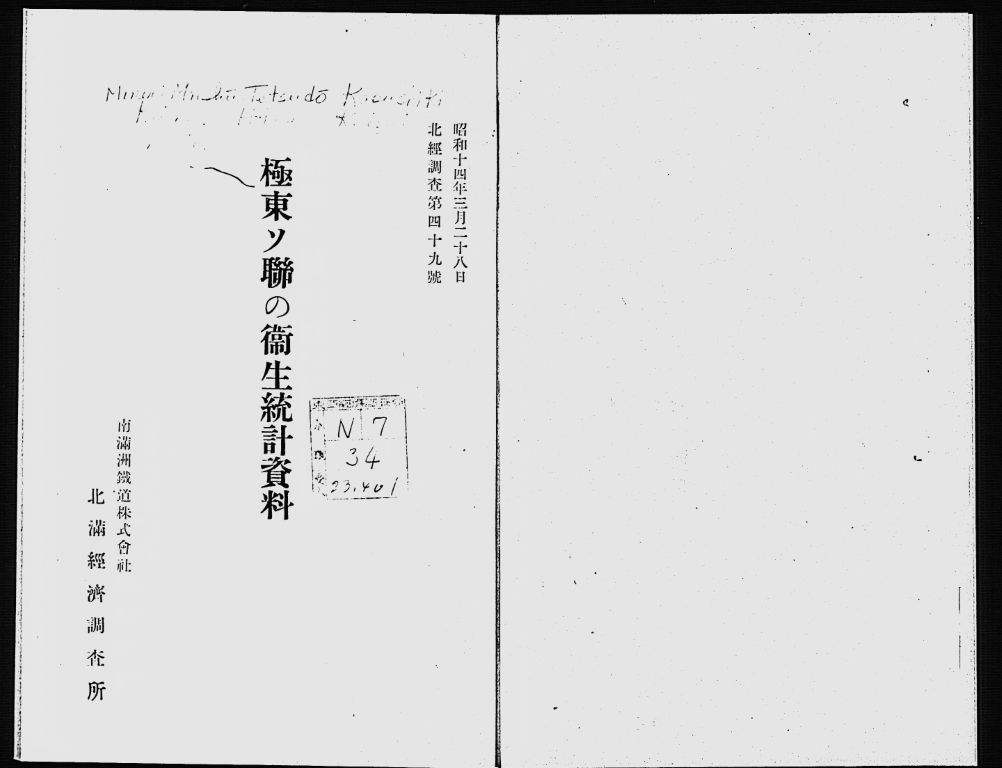 昭和十四年三月二十八日
北經調查第四十九號
極東ソ聯の衞生統計資料
南滿洲鐵道株式會社
北滿經濟調查所
Tetsudō
N 7
34
23.401